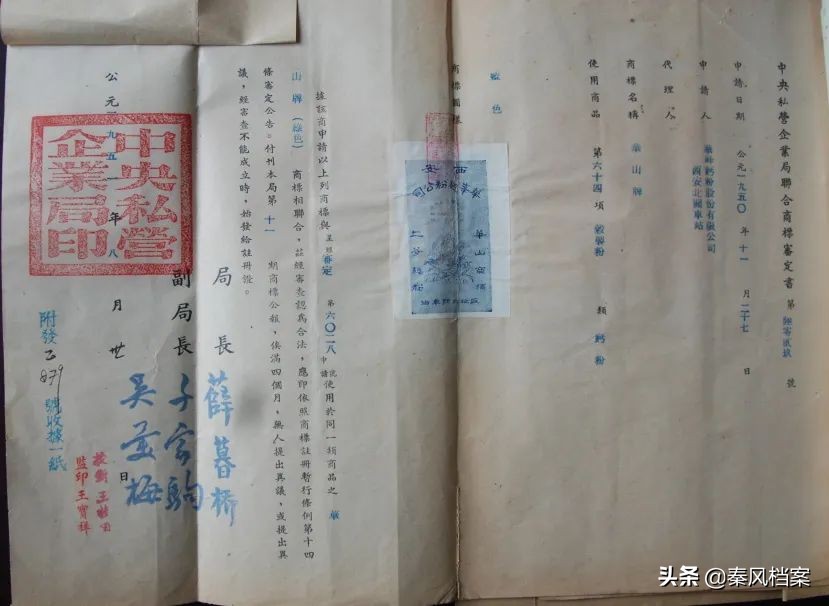 中央私營企業局聯合商標審定書 第 號
申請日期 公元一九五〇年十一月二十七日
申請人 華峰麪粉股份有限公司
西安北關車站
代理人
商標名稱 華山牌
使用商品 第六十四項 穀製粉 類 麪粉
藍色
商標圖樣
據該商申請以上列商標與 審定 第六〇二八號 申請使用於同一類商品之 華
山牌(綠色) 商標相聯合，茲經審查認爲合法，應卽依照商標註冊暫行條例第十四
條審定公告。付刊本局第 十一 期商標公報，俟滿四個月，無人提出異議，或提出異
議，經審查不能成立時，始發給註冊證。
局長 薛暮橋
副局長
公元一九五一年八月卅日
中央私營企業局印
附發乙879號收據一紙
監印王寶祥
头条 @秦风档案